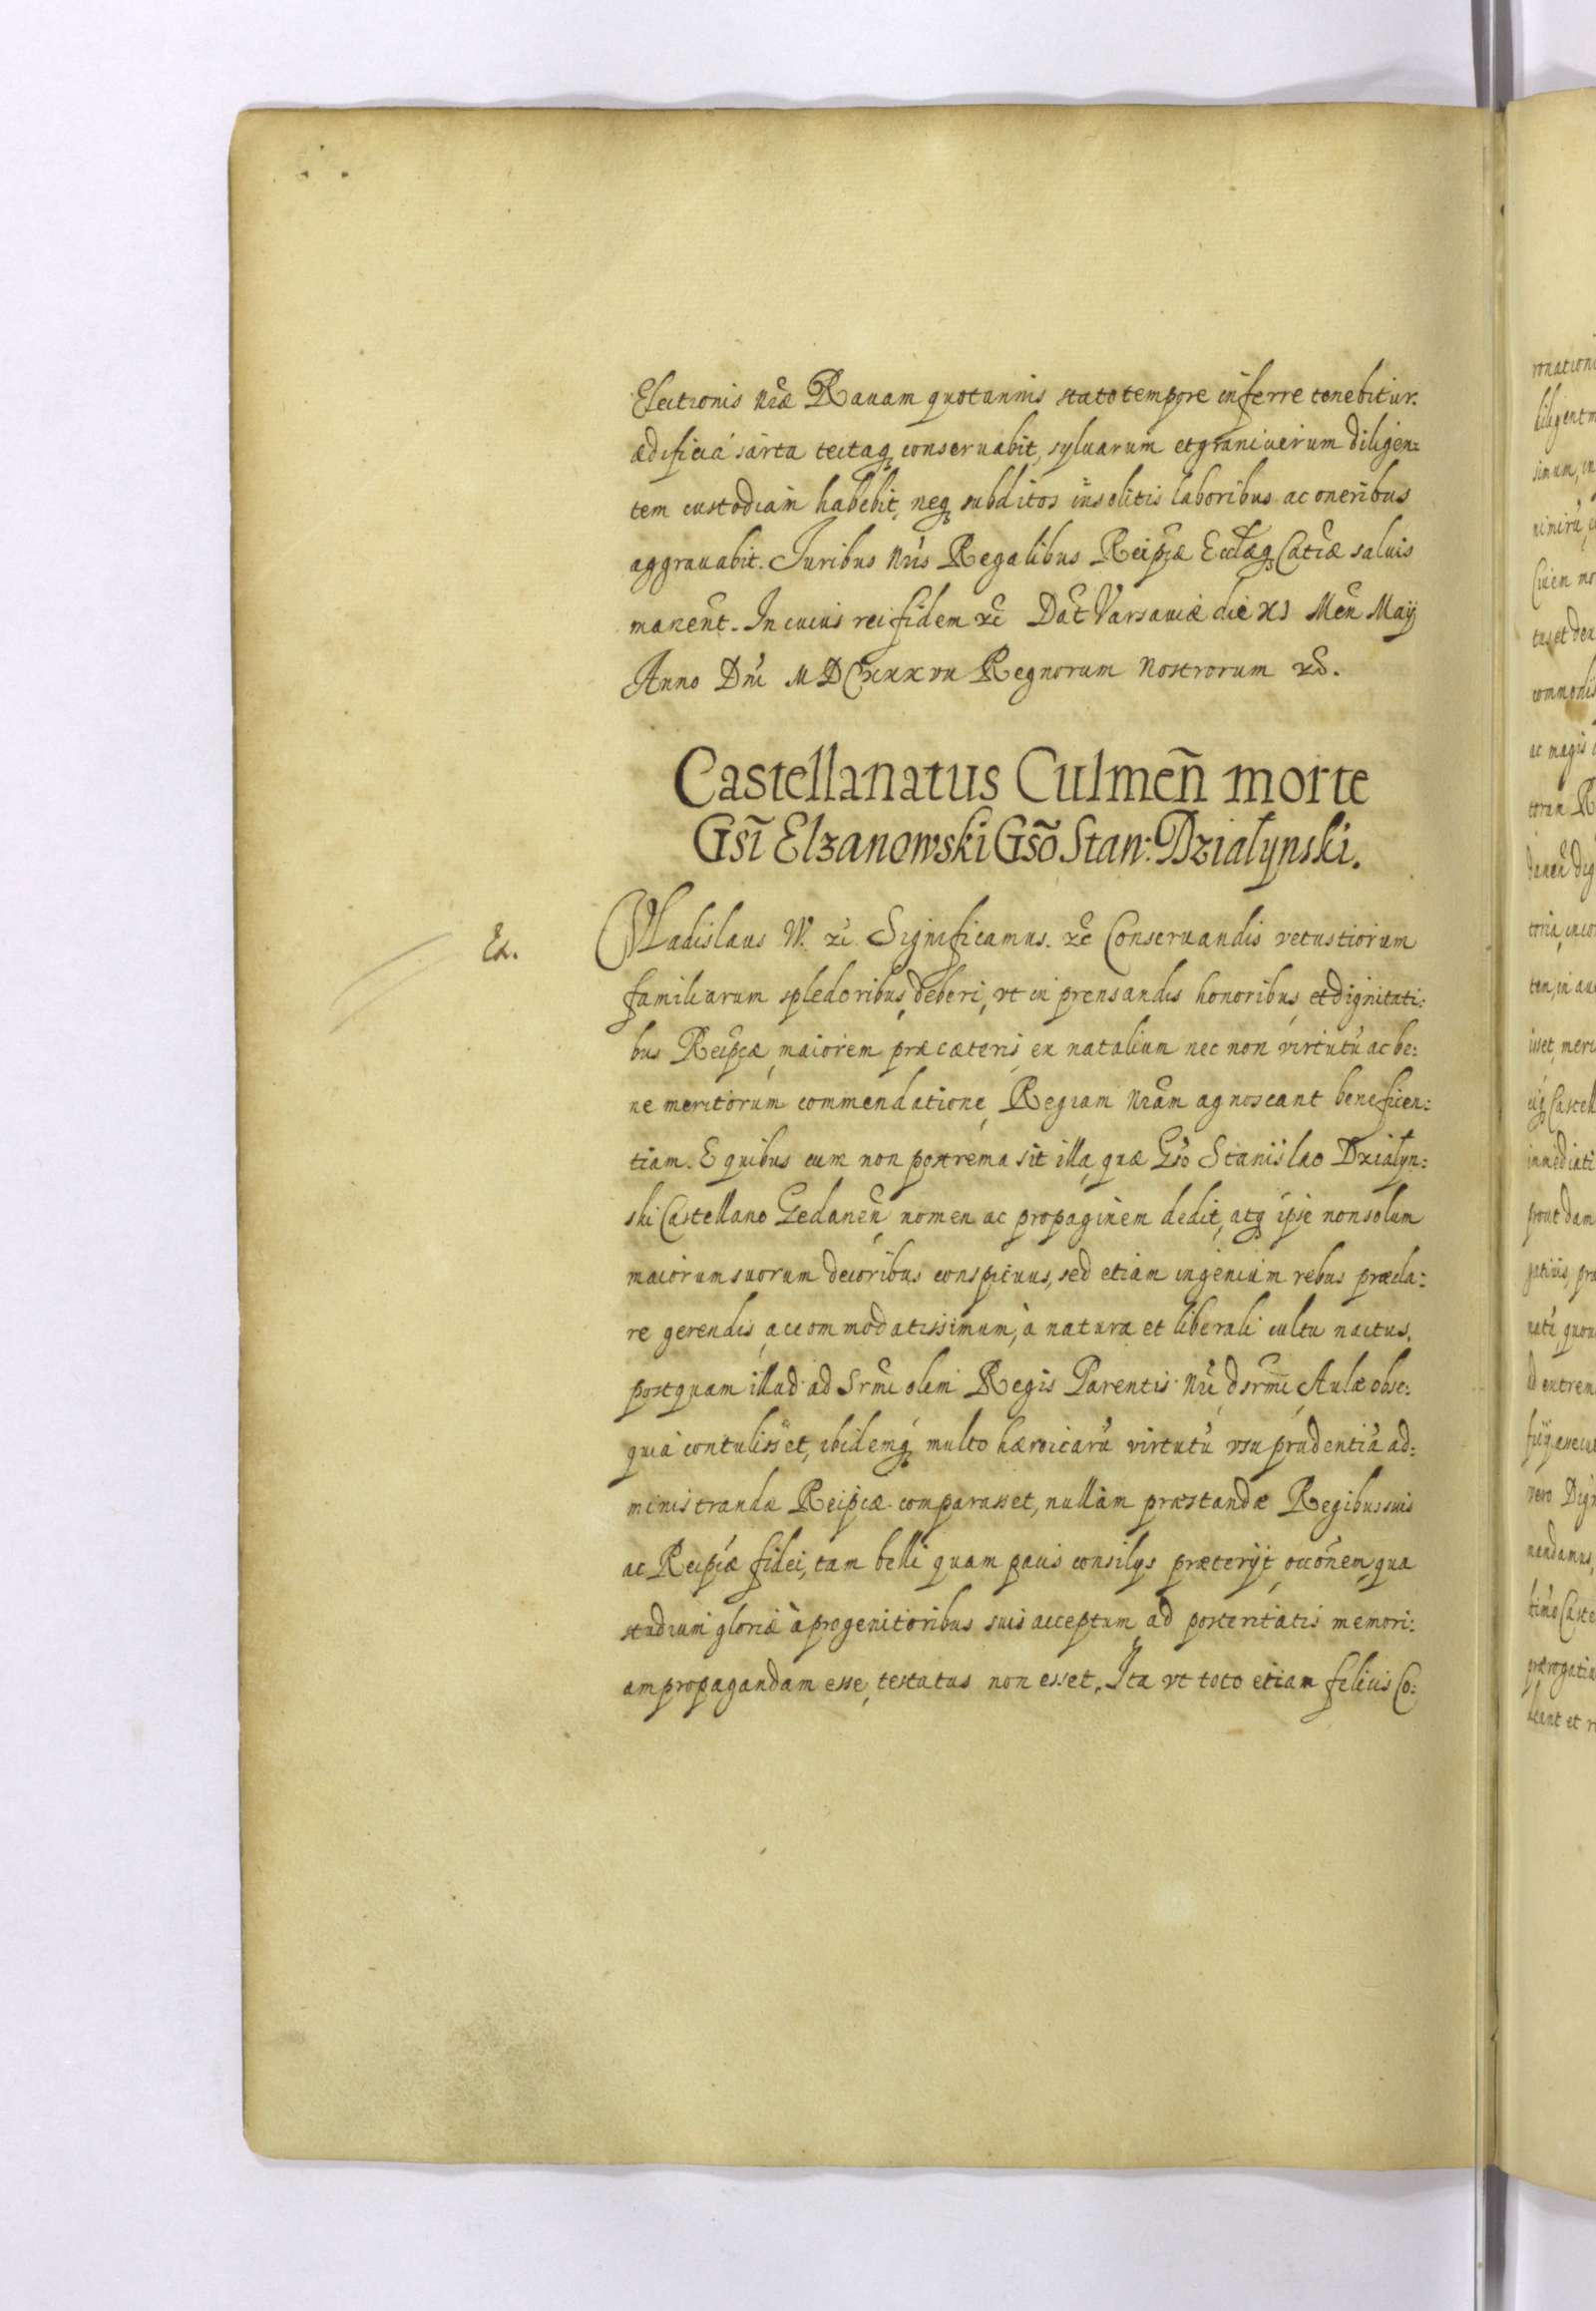 Electionis nrae Rauam quotannis stato tempore inferre tenebitur.
aedificia sarta tectaq conseruabit, syluarum et granicierum diligen:
tem custodiam habebit, neq subditos insolitis laboribus ac oneribus
aggrauabit. Juribus nris Regalibus Reipcae Ecclaeq Catcae saluis
manent. In cuius rei fidem etc Dat Varsauiae die XI Men Maij
Anno Dni MDCXXXVII Regnorum Nostrorum etc.
Castellanatus Culmen̄ morte
Gsī Elzanowski Gsō Stan: Dzialynski.
Ex.
Wladislaus IV. etc Significamus. etc Conseruandis vetustiorum
familiarum spledoribus, deberi, vt in prensandis honoribus, et dignitati:
bus Reipcae, maiorem prae caeteris, ex natalium nec non virtutū ac be:
ne meritorum commendatione, Regiam nram agnoscant beneficen:
tiam. E quibus cum non postrema sit illa, quae Gso Stanislao Dzialyn:
ski Castellano Gedanen̄, nomen ac propaginem dedit, atq ipse non solum
maiorum suorum decoribus conspicuus, sed etiam ingenium rebus praecla:
re gerendis, accommodatissimum, à natura et liberali cultu nactus,
postquam illud ad Srmi olim Regis Parentis Nri, dsrmi, Aulae obse:
quia contulisset, ibidemq multo haeroicarū virtutū vsu prudentiā ad:
ministrandae Reipcae comparasset, nullam praestandae Regibus suis
ac Reipcae fidei, tam belli quam pacis consilys praeterijt, occonem, qua
studium gloriae à progenitoribus suis acceptum, ad posteritatis memori:
am propagandam esse, testatus non esset. Ita vt toto etiam felicis Co: